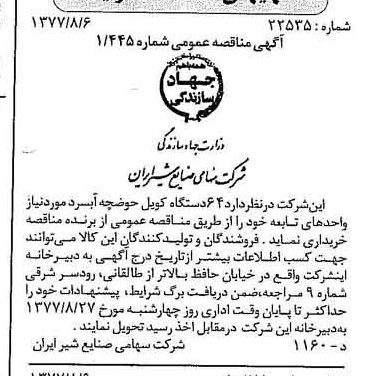 شماره: ۲۲۵۳۵ ۱۳۷۷/۸/۶
آگهی مناقصه عمومی شماره ۱/۴۴۵
همه باهم
جهاد
سازندگی
وزارت جهاد سازندگی
شرکت سهامی صنایع شیر ایران
این شرکت در نظر دارد ۶۴ دستگاه کویل حوضچه آبسرد مورد نیاز
واحدهای تابعه خود را از طریق مناقصه عمومی از برنده مناقصه
خریداری نماید . فروشندگان و تولیدکنندگان این کالا می‌توانند
جهت کسب اطلاعات بیشتر از تاریخ درج آگهی به دبیرخانه
اینشرکت واقع در خیابان حافظ بالاتر از طالقانی، رودسر شرقی
شماره ۹ مراجعه،ضمن دریافت برگ شرایط، پیشنهادات خود را
حداکثر تا پایان وقت اداری روز چهارشنبه مورخ ۱۳۷۷/۸/۲۷
به دبیرخانه این شرکت در مقابل اخذ رسید تحویل نمایند .
د - ۱۱۶۰ شرکت سهامی صنایع شیر ایران